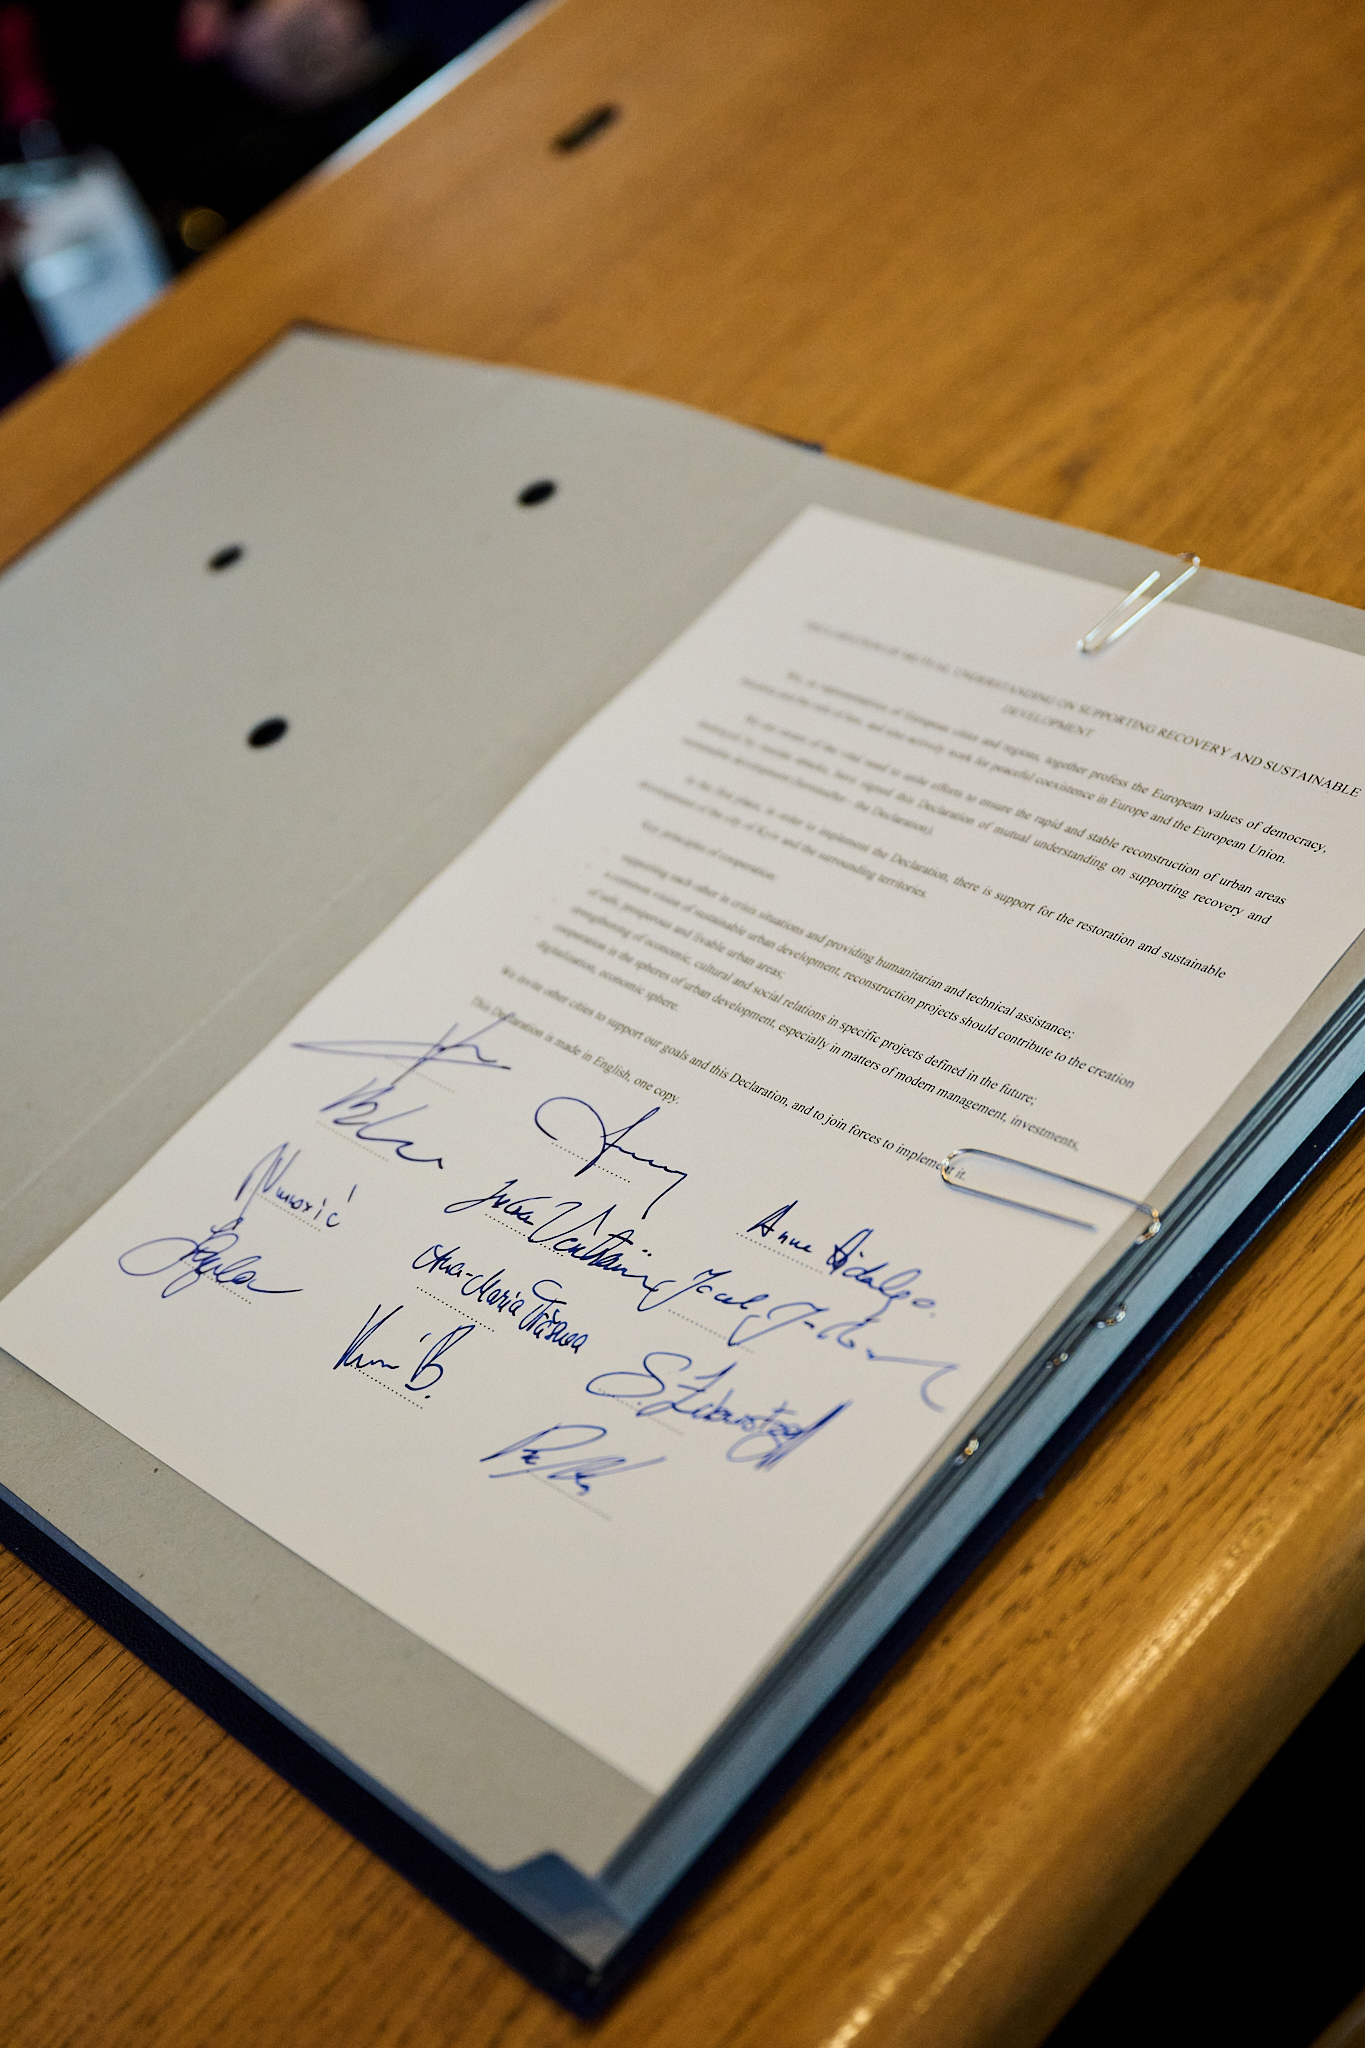 DECLARATION OF MUTUAL UNDERSTANDING ON SUPPORTING RECOVERY AND SUSTAINABLE
DEVELOPMENT
We, as representatives of European cities and regions, together profess the European values of democracy,
freedom and the rule of law, and also actively work for peaceful coexistence in Europe and the European Union.
We are aware of the vital need to unite efforts to ensure the rapid and stable reconstruction of urban areas
destroyed by missile attacks, have signed this Declaration of mutual understanding on supporting recovery and
sustainable development (hereinafter - the Declaration).
In the first place, in order to implement the Declaration, there is support for the restoration and sustainable
development of the city of Kyiv and the surrounding territories.
Key principles of cooperation:
supporting each other in crisis situations and providing humanitarian and technical assistance;
a common vision of sustainable urban development, reconstruction projects should contribute to the creation
of safe, prosperous and livable urban areas;
strengthening of economic, cultural and social relations in specific projects defined in the future;
cooperation in the spheres of urban development, especially in matters of modern management, investments,
digitalization, economic sphere.
We invite other cities to support our goals and this Declaration, and to join forces to implement it.
This Declaration is made in English, one copy.
Anne Hidalgo
Ana-Maria
B.
S.